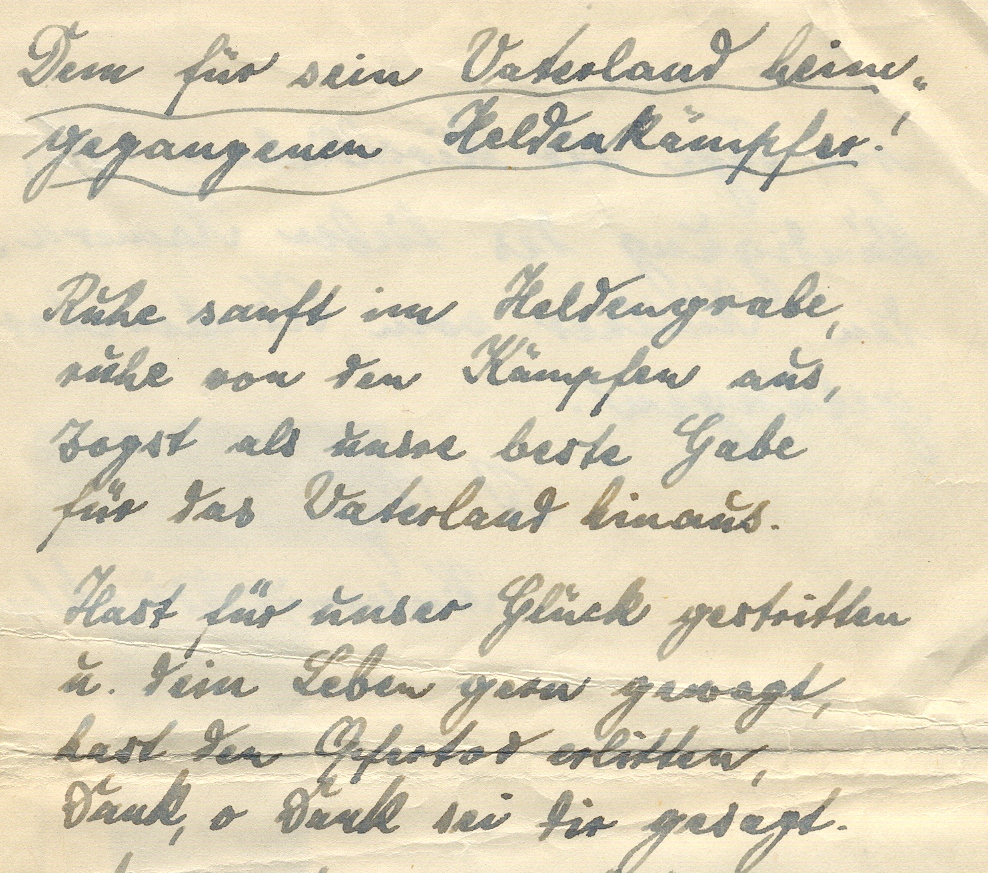 Dem für sein Vaterland heim-
gegangenen Heldenkämpfer!
Ruhe sanft im Heldengrabe,
ruhe von den Kämpfen aus,
zogst als unsre beste Gabe
für das Vaterland hinaus.
Hast für unser Glück gestritten
u. dein Leben gern gewagt,
hast den Opfertod erlitten,
Dank, o Dank sei dir gesagt.